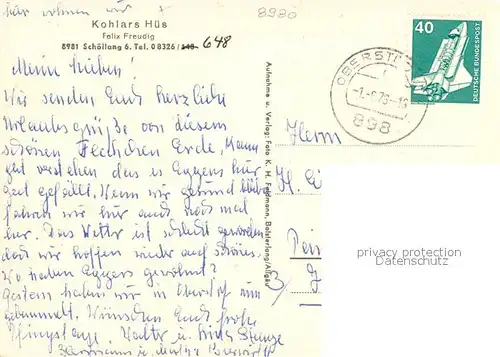 hier wohnen wir
8980
Kohlars Hüs
Felix Freudig
8981 Schöllang 6. Tel. 08326/ 648
Meine Lieben!
Wir senden Euch herzliche
Urlaubsgrüße von diesem
schönen Fleckchen Erde. Kann
gut verstehen das es Eggers hier
gut gefällt. Wenn wir gesund bleiben
fahren wir hier auch noch mal
her. Das Wetter ist schlecht geworden
doch wir hoffen wieder auf schönes.
Wo haben Eggers gewohnt?
Gestern haben wir in Oberstdorf rum
gebummelt. Wünschen Euch frohe
Pfingsttage. Walter u.
Aufnahme u. Verlag: Foto K. H. Feldmann, Bolsterlang/Allgäu
40
DEUTSCHE BUNDESPOST
OBERST
898
Herrn
privacy protection
Datenschutz